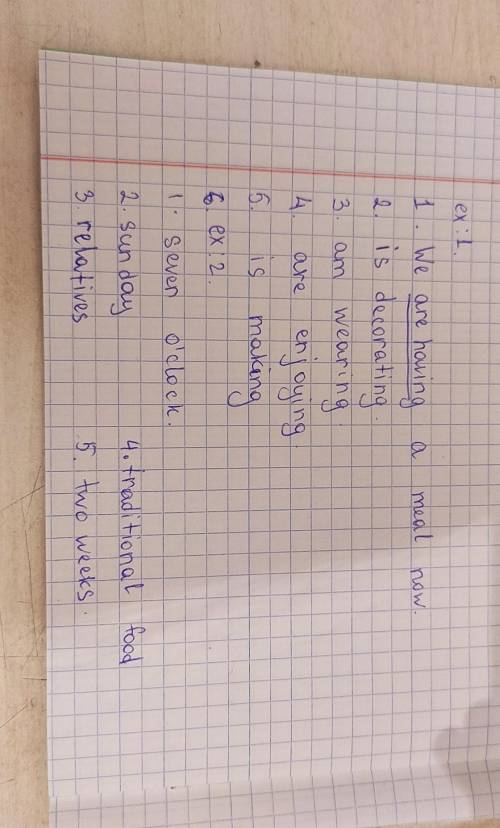 ex:1.
1. We are having a meal now.
2. is decorating.
3. am wearing.
4. are enjoying.
5. is making
6. ex:2.
1. seven o'clock.
2. sunday
3. relatives
4. traditional food
5. two weeks.